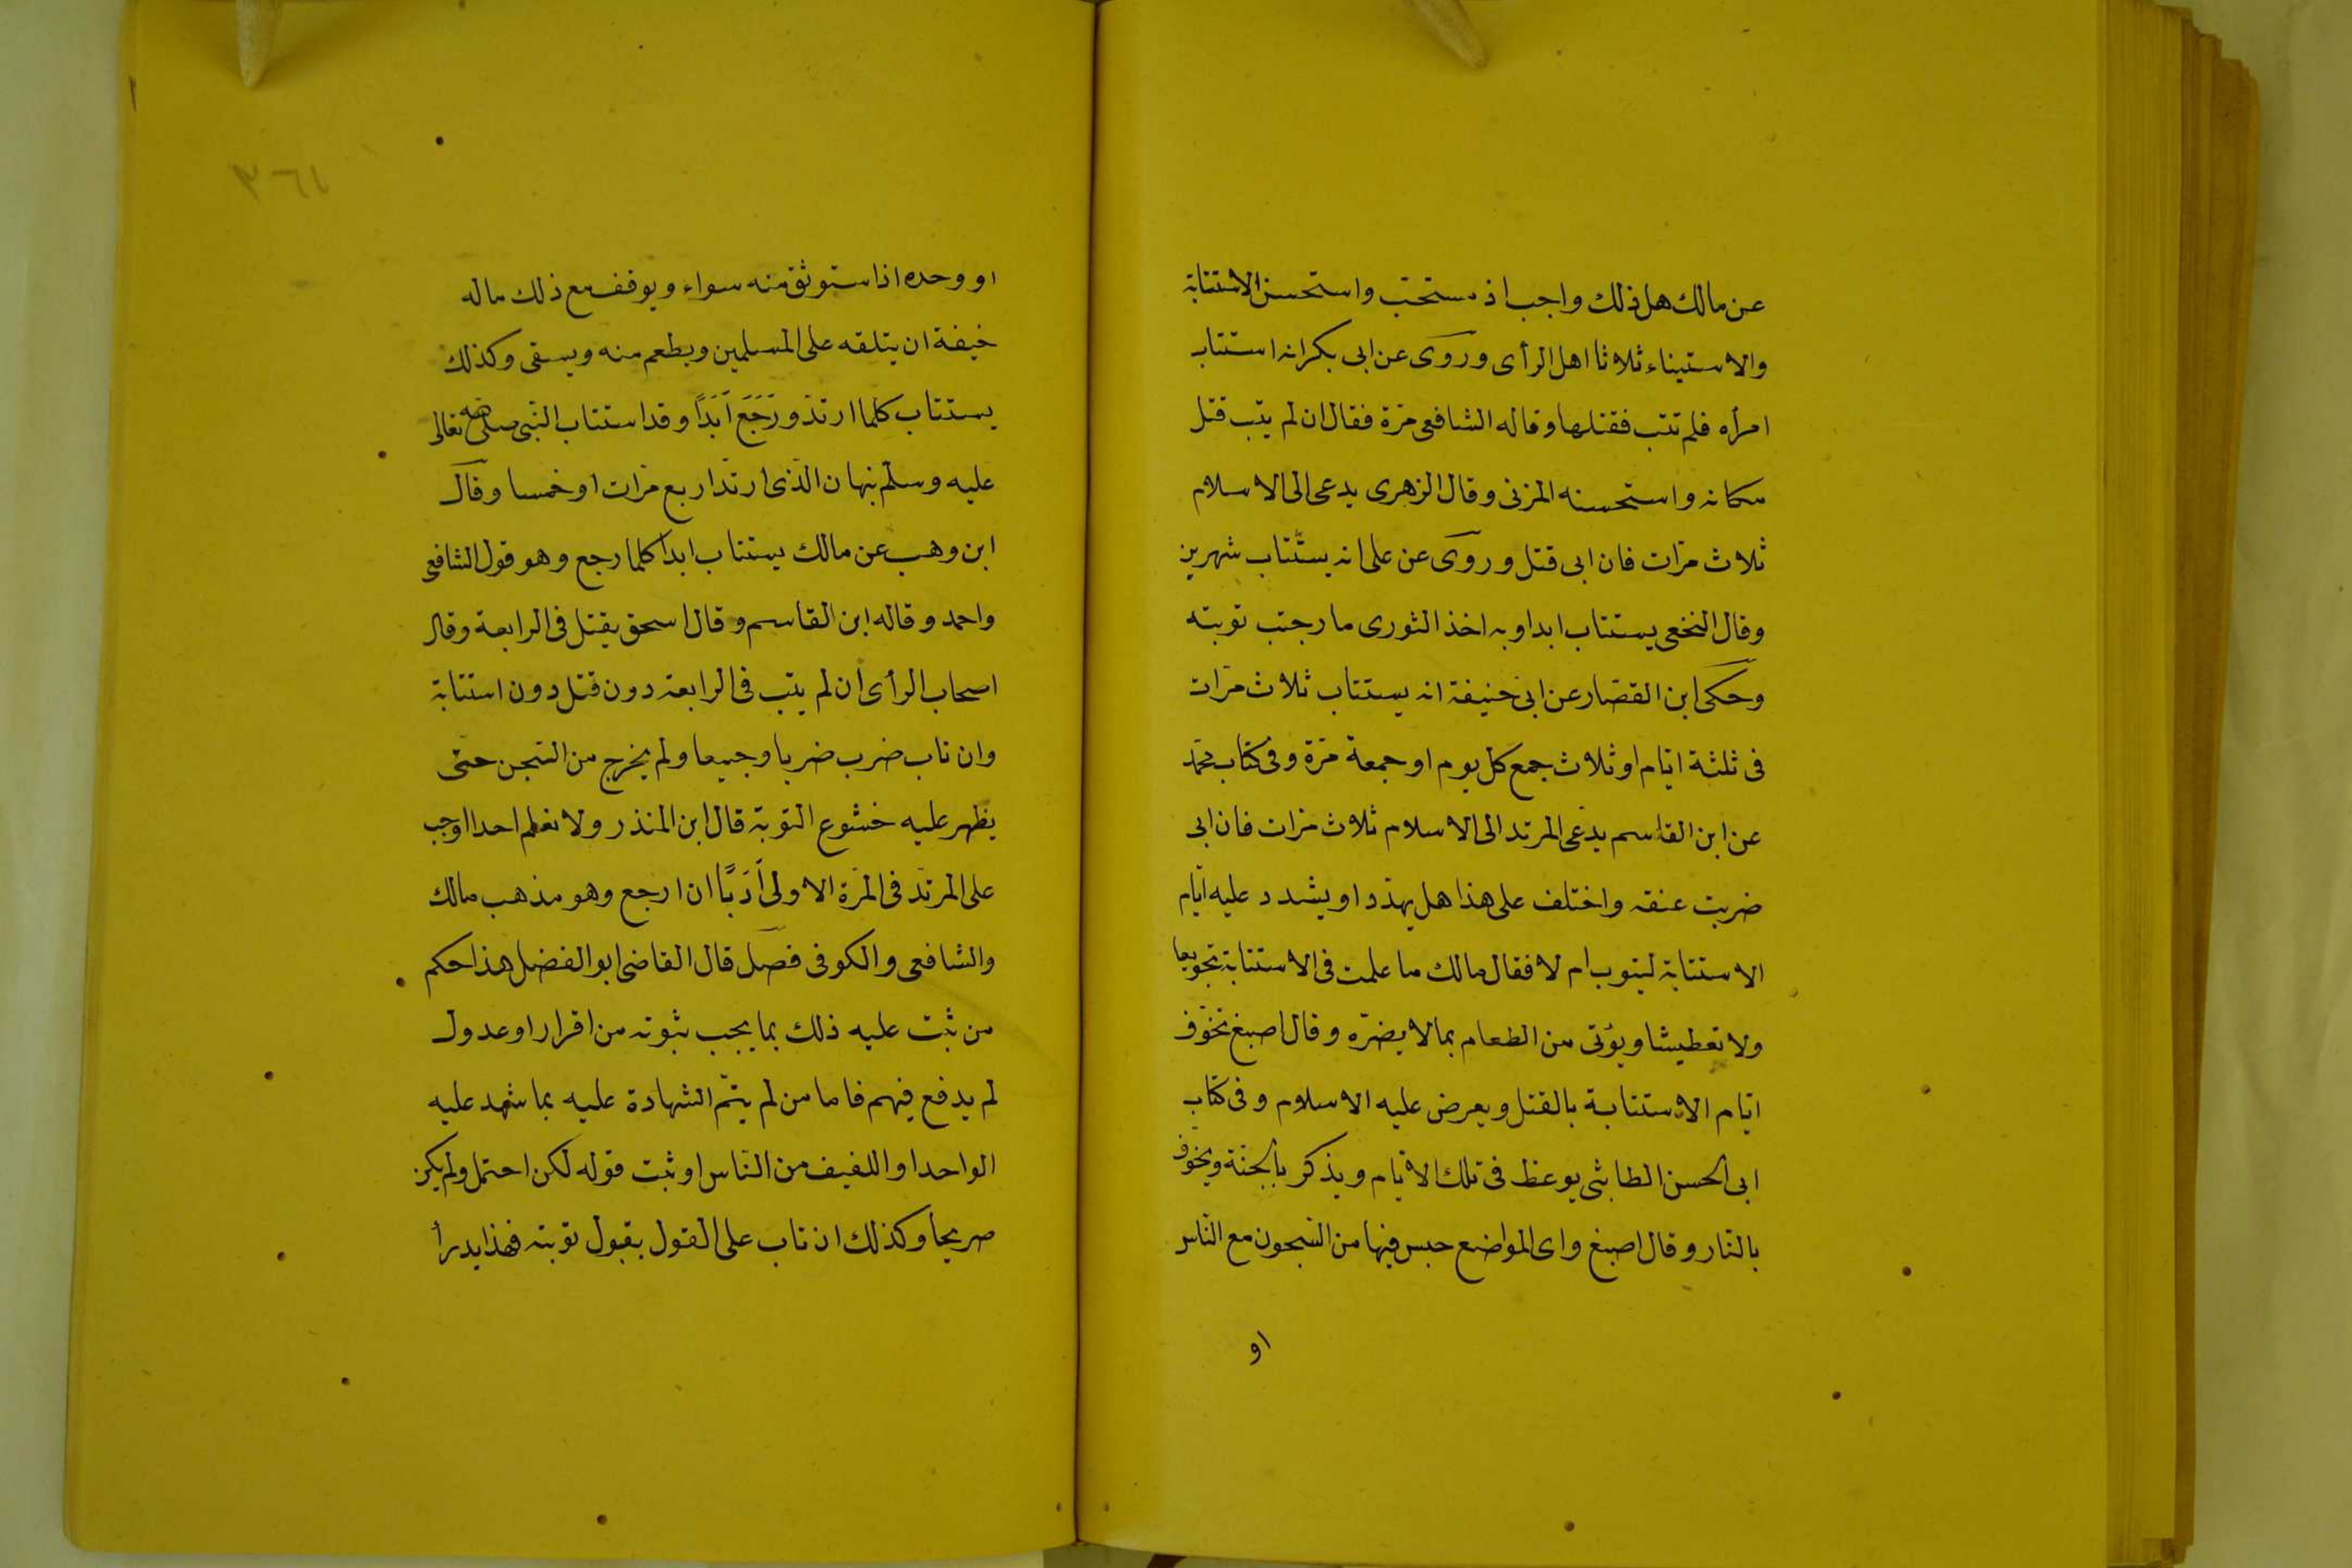 عن مالك هل ذلك واجب اذ مستحب واستحسن الاستتابة
والاستيناء ثلاثا اهل الرأى وروى عن ابى بكر انه استتاب
امرأه فلم تتب فقتلها وقاله الشافعى مرّة فقال ان لم يتب قتل
مكانه واستحسنه المزنى وقال الزهرى يدعى الى الاسلام
ثلاث مرّات فان ابى قتل وروى عن على انه يستتاب شهرين
وقال النخعى يستتاب ابدا وبه اخذ الثورى ما رجيت توبته
وحكى ابن القصّار عن ابى حنيفة انه يستتاب ثلاث مرّات
فى ثلثة ايّام او ثلاث جمع كل يوم او جمعة مرّة وفى كتاب محمّد
عن ابن القاسم يدعى المرتد الى الاسلام ثلاث مرات فان ابى
ضربت عنقه واختلف على هذا هل يهدّد او يشدد عليه ايّام
الاستتابة ليتوب ام لا فقال مالك ما علمت فى الاستتابة تجويعا
ولا تعطيشا ويؤتى من الطعام بما لا يضرّه وقال اصبغ تخوّف
ايّام الاستتابة بالقتل ويعرض عليه الاسلام وفى كتاب
ابى الحسن الطابثى يوعظ فى تلك الايّام ويذكر بالجنّة ويخوّف
بالنّار وقال اصبغ واى المواضع حبس فيها من السّجون مع النّاس
او
٣٦١
او وحده اذا ستوثق منه سواء ويوقف مع ذلك ماله
خيفة ان يتلفه على المسلمين ويطعم منه ويسقى وكذلك
يستتاب كلما ارتدّ ورَجَعَ اَبَدًا وقد استتاب النّبى صلى الله تعالى
عليه وسلّم نبهان الّذى ارتدّ اربع مرّات او خمسا وقال
ابن وهب عن مالك يستتاب ابدا كلما رجع وهو قول الشافعى
واحمد وقاله ابن القاسم وقال اسحق يقتل فى الرابعة وقال
اصحاب الرأى ان لم يتب فى الرابعة دون قتل دون استتابة
وان تاب ضرب ضربا وجيعا ولم يخرج من السّجن حتّى
يظهر عليه خشوع التوبة قال ابن المنذر ولا نعلم احدا اوجب
على المرتدّ فى المرّة الاولى اَدَبًا ان ارجع وهو مذهب مالك
والشافعى والكوفى فصل قال القاضى ابو الفضل هذا حكم
من ثبت عليه ذلك بما يجب ثبوته من اقرار او عدول
لم يدفع فيهم فاما من لم يتمّ الشهادة عليه بما شهد عليه
الواحد او اللفيف من النّاس او ثبت قوله لكن احتمل ولم يكن
صريحا وكذلك ان تاب على القول بقبول توبته فهذا يدرأ